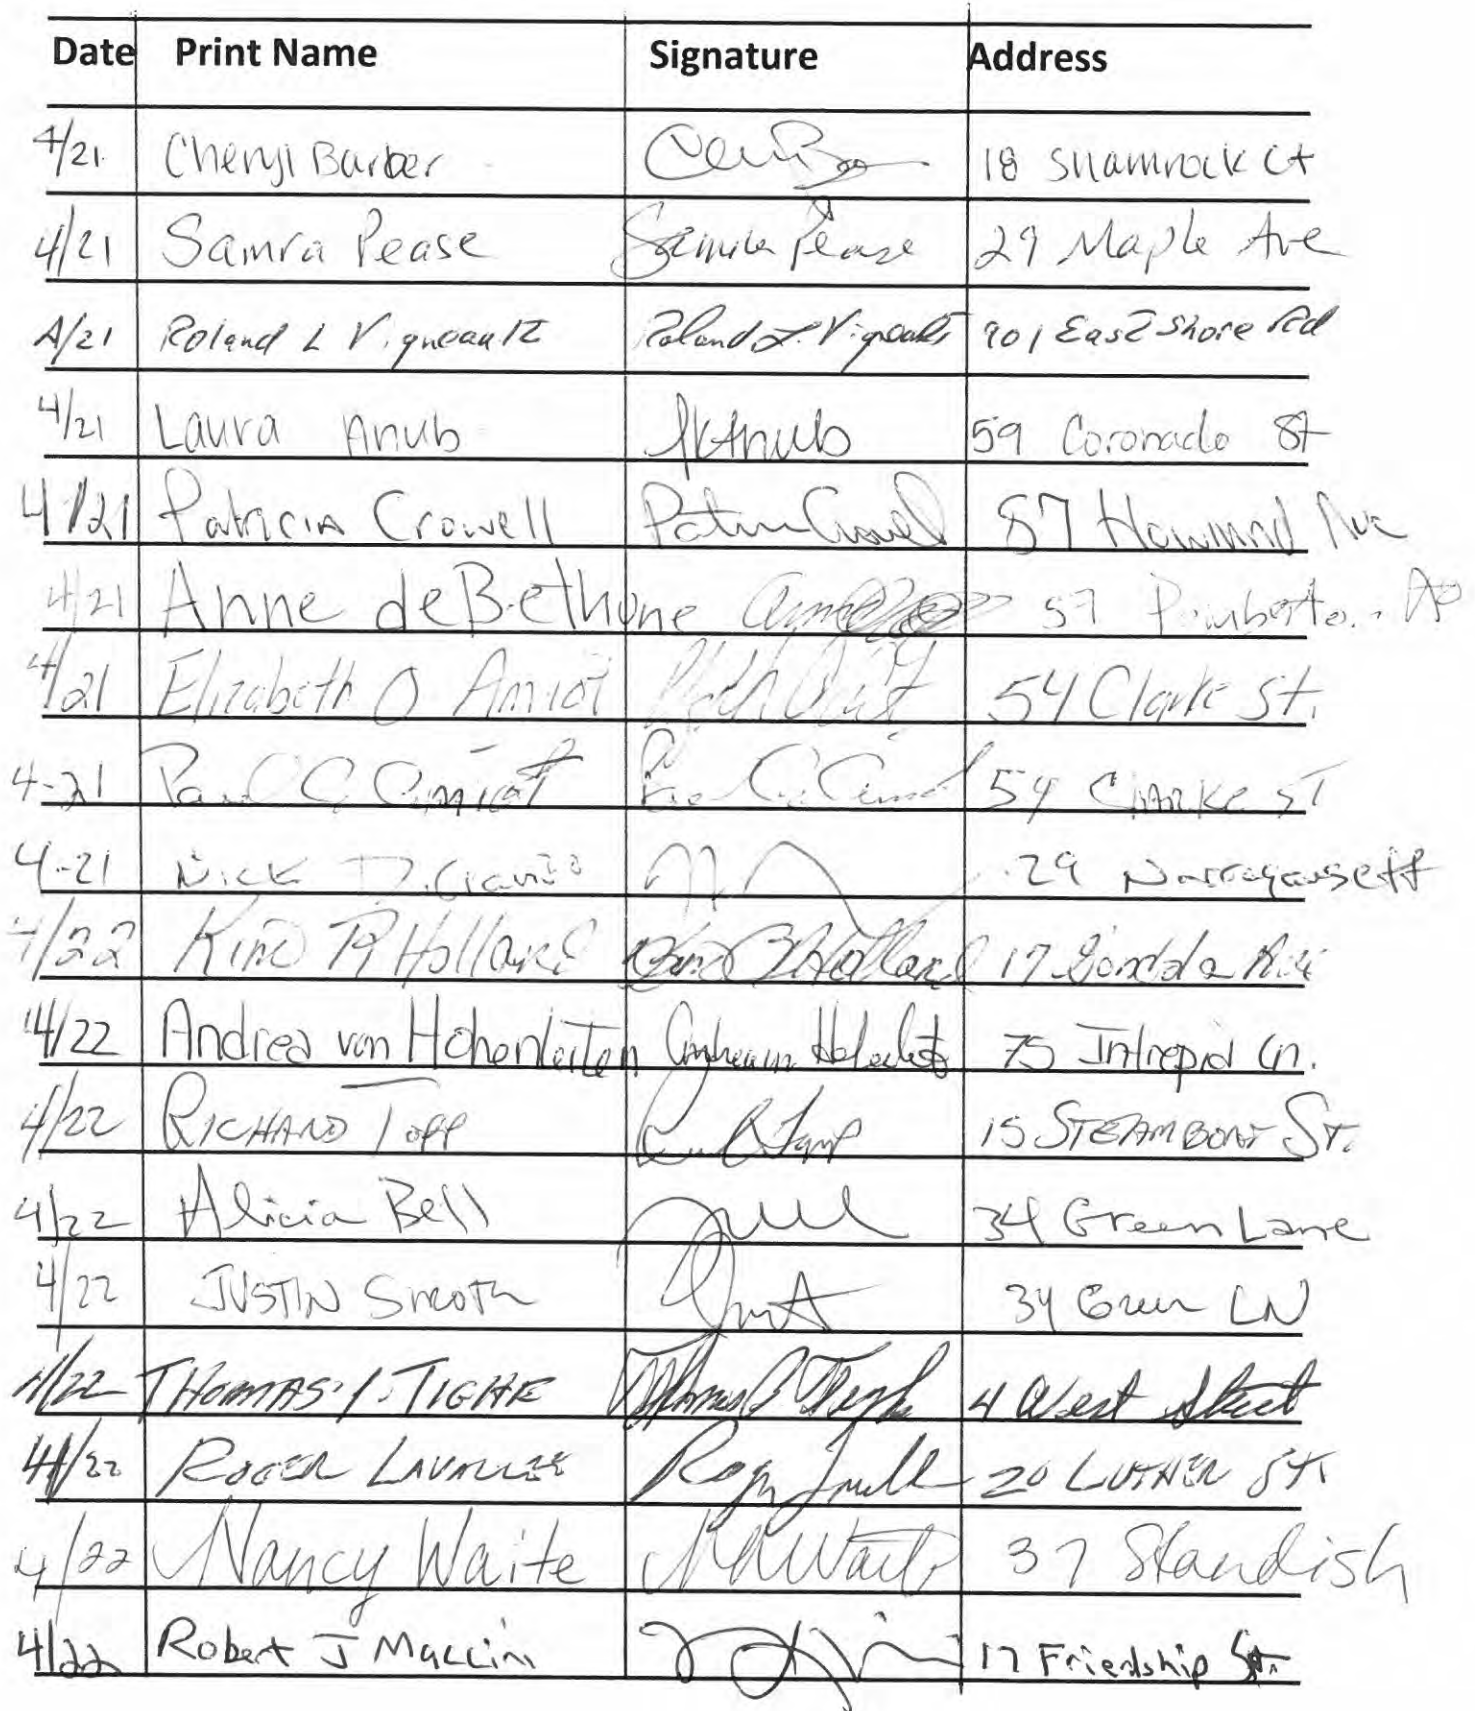 Date Print Name Signature Address
4/21 Cheryl Barber 18 Shamrock Ct
4/21 Samra Pease Samra Pease 29 Maple Ave
4/21 Roland L Vigneault Roland L. Vigneault 901 East Shore Rd
4/21 Laura Anub LAnub 59 Coronado St
4/21 Patricia Crowell 87 Howland Ave
4/21 Anne deBethune 57
4/21 Elizabeth O Amiot 54 Clarke St.
4-21 Paul C Amiot Paul C. Amiot 54 Clarke ST
4-21 Nick 29 Narragansett
4/22 Kim R Holland Holland 17 Gondola Ave
4/22 Andrea von Hohenleiten 75 Intrepid Ln.
4/22 RICHARD TOPP 15 STEAMBOAT ST.
4/22 Alicia Bell 34 Green Lane
4/22 JUSTIN Smoth 34 Green LN
4/22 THOMAS J. TIGHE Thomas J Tighe 4 West Street
4/22 ROGER LAVALLEE 20 LUTHER St.
4/22 Nancy Waite Waite 37 Standish
4/22 Robert J Maccini 17 Friendship St.